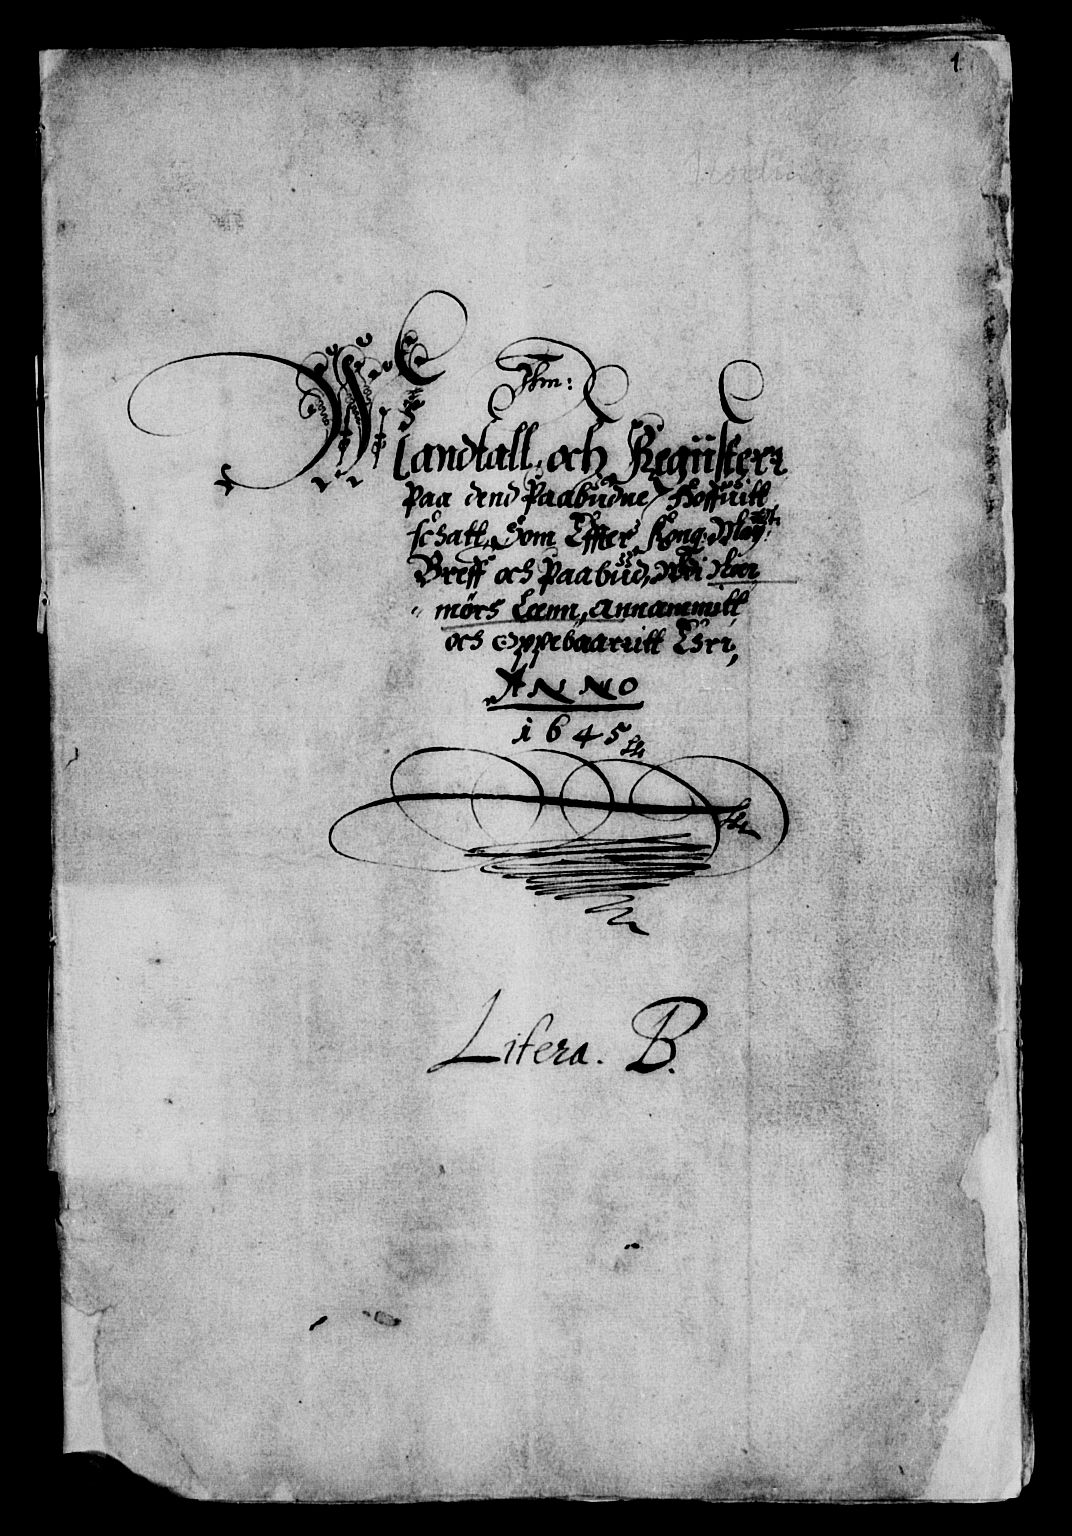 1
Jhm:
Mandtall och Register
Paa dend Paabudne Hoffuitt
schatt, Som Effter Kong: May:
Breff och Paabud, Wdi Nor
mørs Leenn, Annammitt
och Oppebaaritt Er,
ANNO
1645
Litera. B.